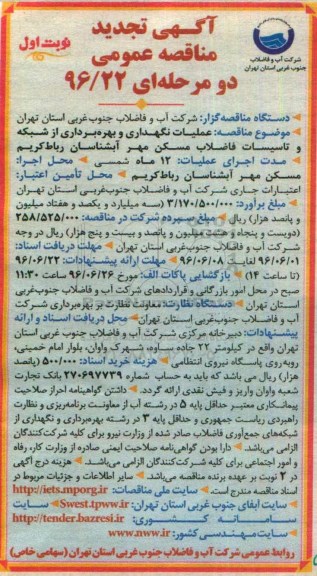 آگهی تجدید
مناقصه عمومی
دو مرحله‌ای ۹۶/۲۲
نوبت اول
شرکت آب و فاضلاب
جنوب غربی استان تهران
دستگاه مناقصه‌گزار: شرکت آب و فاضلاب جنوب‌غربی استان تهران
موضوع مناقصه: عملیات نگهداری و بهره‌برداری از شبکه
و تاسیسات فاضلاب مسکن مهر آبشناسان رباط‌کریم
مدت اجرای عملیات: ۱۲ ماه شمسی محل اجرا:
مسکن مهر آبشناسان رباط‌کریم محل تأمین اعتبار:
اعتبارات جاری شرکت آب و فاضلاب جنوب‌غربی استان تهران
مبلغ برآورد: ۳/۱۷۰/۵۰۰/۰۰۰ (سه میلیارد و یکصد و هفتاد میلیون
و پانصد هزار) ریال مبلغ سپرده شرکت در مناقصه: ۲۵۸/۵۲۵/۰۰۰
(دویست و پنجاه و هشت میلیون و پانصد و بیست و پنج هزار) ریال در وجه
شرکت آب و فاضلاب جنوب غربی استان تهران مهلت دریافت اسناد:
۹۶/۰۶/۰۱ لغایت ۹۶/۰۶/۰۸ مهلت ارائه پیشنهادات: ۹۶/۰۶/۲۲
(تا ساعت ۱۴) بازگشایی پاکات الف: مورخ ۹۶/۰۶/۲۶ ساعت ۱۱:۳۰
صبح در محل امور بازرگانی و قراردادهای شرکت آب و فاضلاب جنوب‌غربی
استان تهران دستگاه نظارت: معاونت نظارت بر بهره‌برداری شرکت
آب و فاضلاب جنوب‌غربی استان تهران محل دریافت اسناد و ارائه
پیشنهادات: دبیرخانه مرکزی شرکت آب و فاضلاب جنوب غربی استان
تهران واقع در کیلومتر ۲۲ جاده ساوه، شهرک واوان، بلوار امام خمینی،
روبه‌روی پاسگاه نیروی انتظامی هزینه خرید اسناد: ۵۰۰/۰۰۰ (پانصد
هزار) ریال می باشد که باید به حساب شماره ۲۷۰۶۹۷۷۳۹ بانک تجارت
شعبه واوان واریز و فیش نقدی ارائه گردد. داشتن گواهینامه احراز صلاحیت
پیمانکاری معتبر حداقل پایه ۵ در رشته آب از معاونت برنامه‌ریزی و نظارت
راهبردی ریاست جمهوری و حداقل پایه ۳ در رشته بهره‌برداری و نگهداری از
شبکه‌های جمع‌آوری فاضلاب صادر شده از وزارت نیرو برای کلیه شرکت‌کنندگان
الزامی می‌باشد. دارا بودن گواهینامه صلاحیت ایمنی صادره از وزارت کار، رفاه
و امور اجتماعی برای کلیه شرکت‌کنندگان الزامی می‌باشد. هزینه درج آگهی
در ۲ نوبت بر عهده برنده مناقصه می‌باشد. سایر اطلاعات و جزئیات مربوط در
اسناد مناقصه مندرج است. سایت ملی مناقصات: http://iets.mporg.ir
سایت آبفای جنوب غربی استان تهران: Swest.tpww.ir سایت
سامانه کشوری: http://tender.bazresi.ir
سایت مهندسی کشور: www.nww.ir
روابط عمومی شرکت آب و فاضلاب جنوب غربی استان تهران (سهامی خاص)